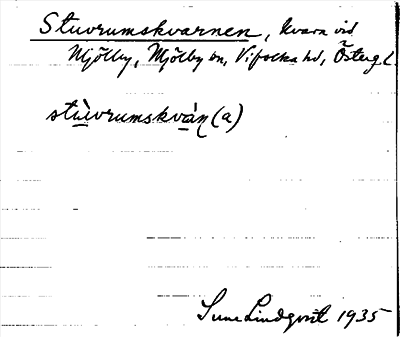 Stuvrumskvarnen, kvarn vid
Mjölby, Mjölby sn, Vifolka hd, Östergl.
stùvrumskván(a)
Sune Lindqvist 1935